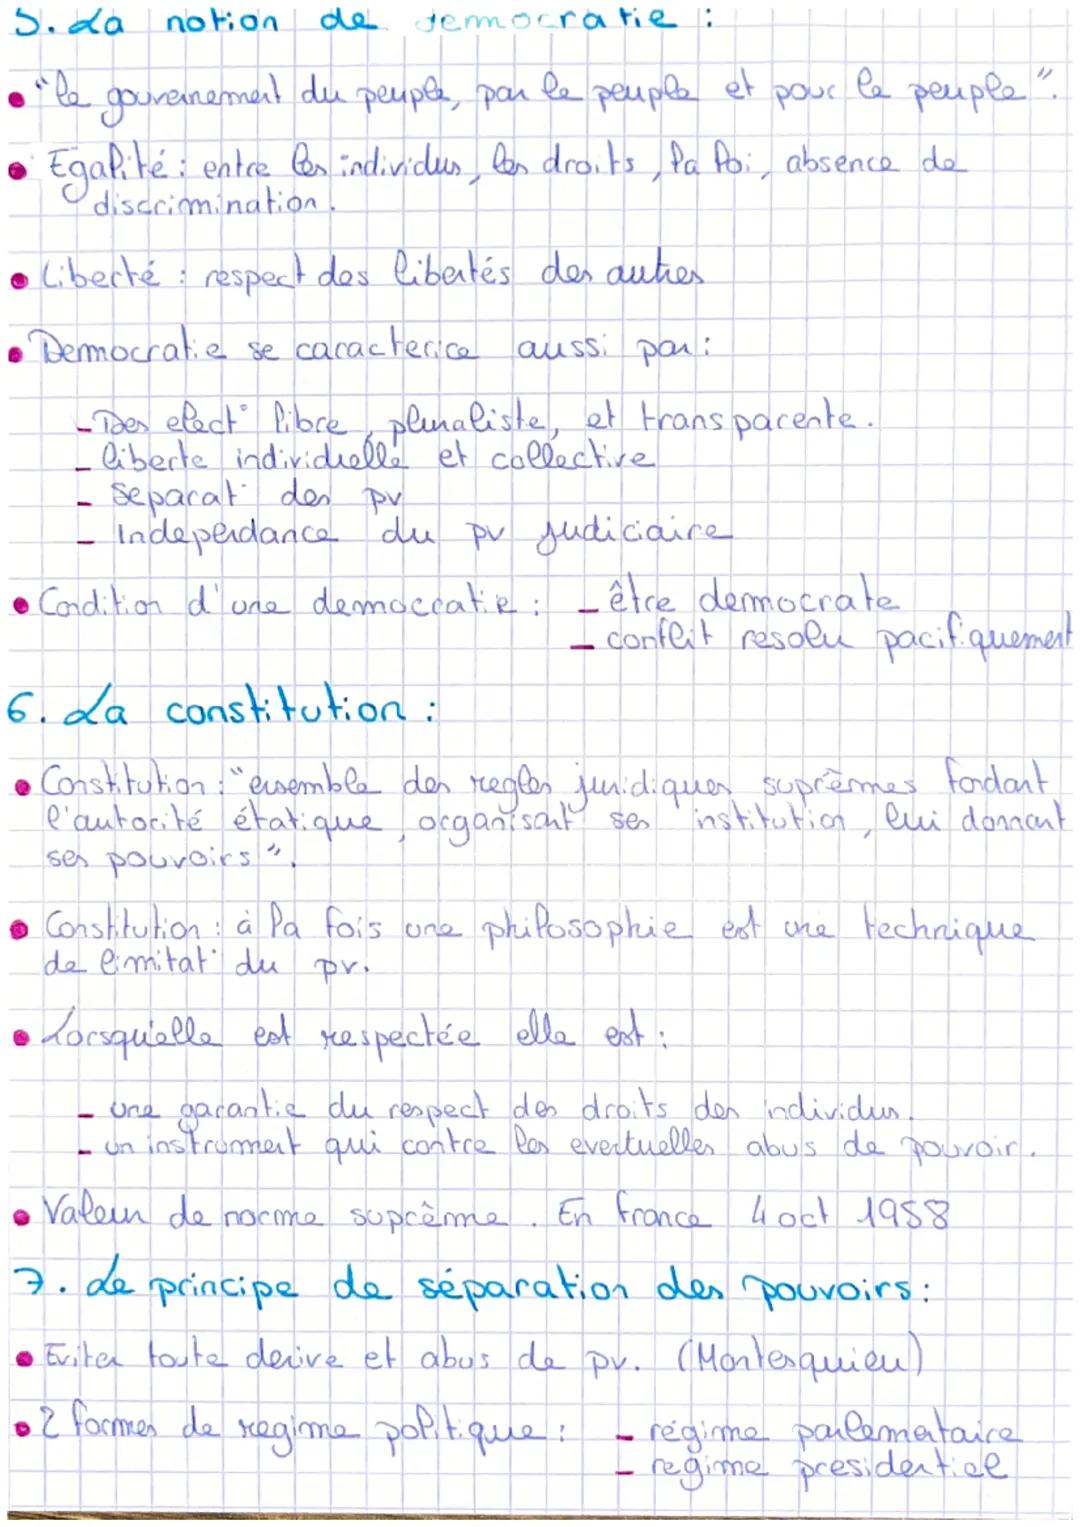 5. La notion de democratie :
• "le gouvernement du peuple, par le peuple et pour le peuple".
• Egalité : entre les individus, les droits, la loi, absence de
discrimination.
• Liberté : respect des libertés des autres
• Democratie se caracterice aussi par :
- Des elect° libre, pluraliste, et transparente.
- liberte individuelle et collective
- separat° des pv
- Independance du pv judiciaire
• Condition d'une democratie : - être democrate
- conflit resolu pacifiquement
6. La constitution :
• Constitution : "ensemble des regles juridiques suprêmes fondant
l'autorité étatique, organisant ses institution, lui donnant
ses pouvoirs".
• Constitution : à la fois une philosophie est une technique
de limitat° du pv.
• Lorsqu'elle est respectée elle est :
- une garantie du respect des droits des individus.
- un instrument qui contre les eventuelles abus de pouvoir.
• Valeur de norme suprême. En france 4 oct 1958
7. Le principe de séparation des pouvoirs :
• Eviter toute derive et abus de pv. (Montesquieu)
• 2 formes de regime politique : - régime parlementaire
- regime presidentiel